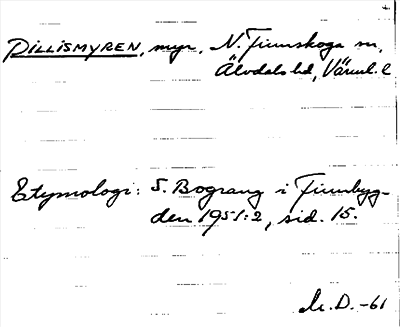 DILLISMYREN, myr, N. Finnskoga sn,
Älvdals hd, Värml. l
Etymologi: S. Bograng i Finnbyg-
den 1951:2, sid. 15.
M.D. -61